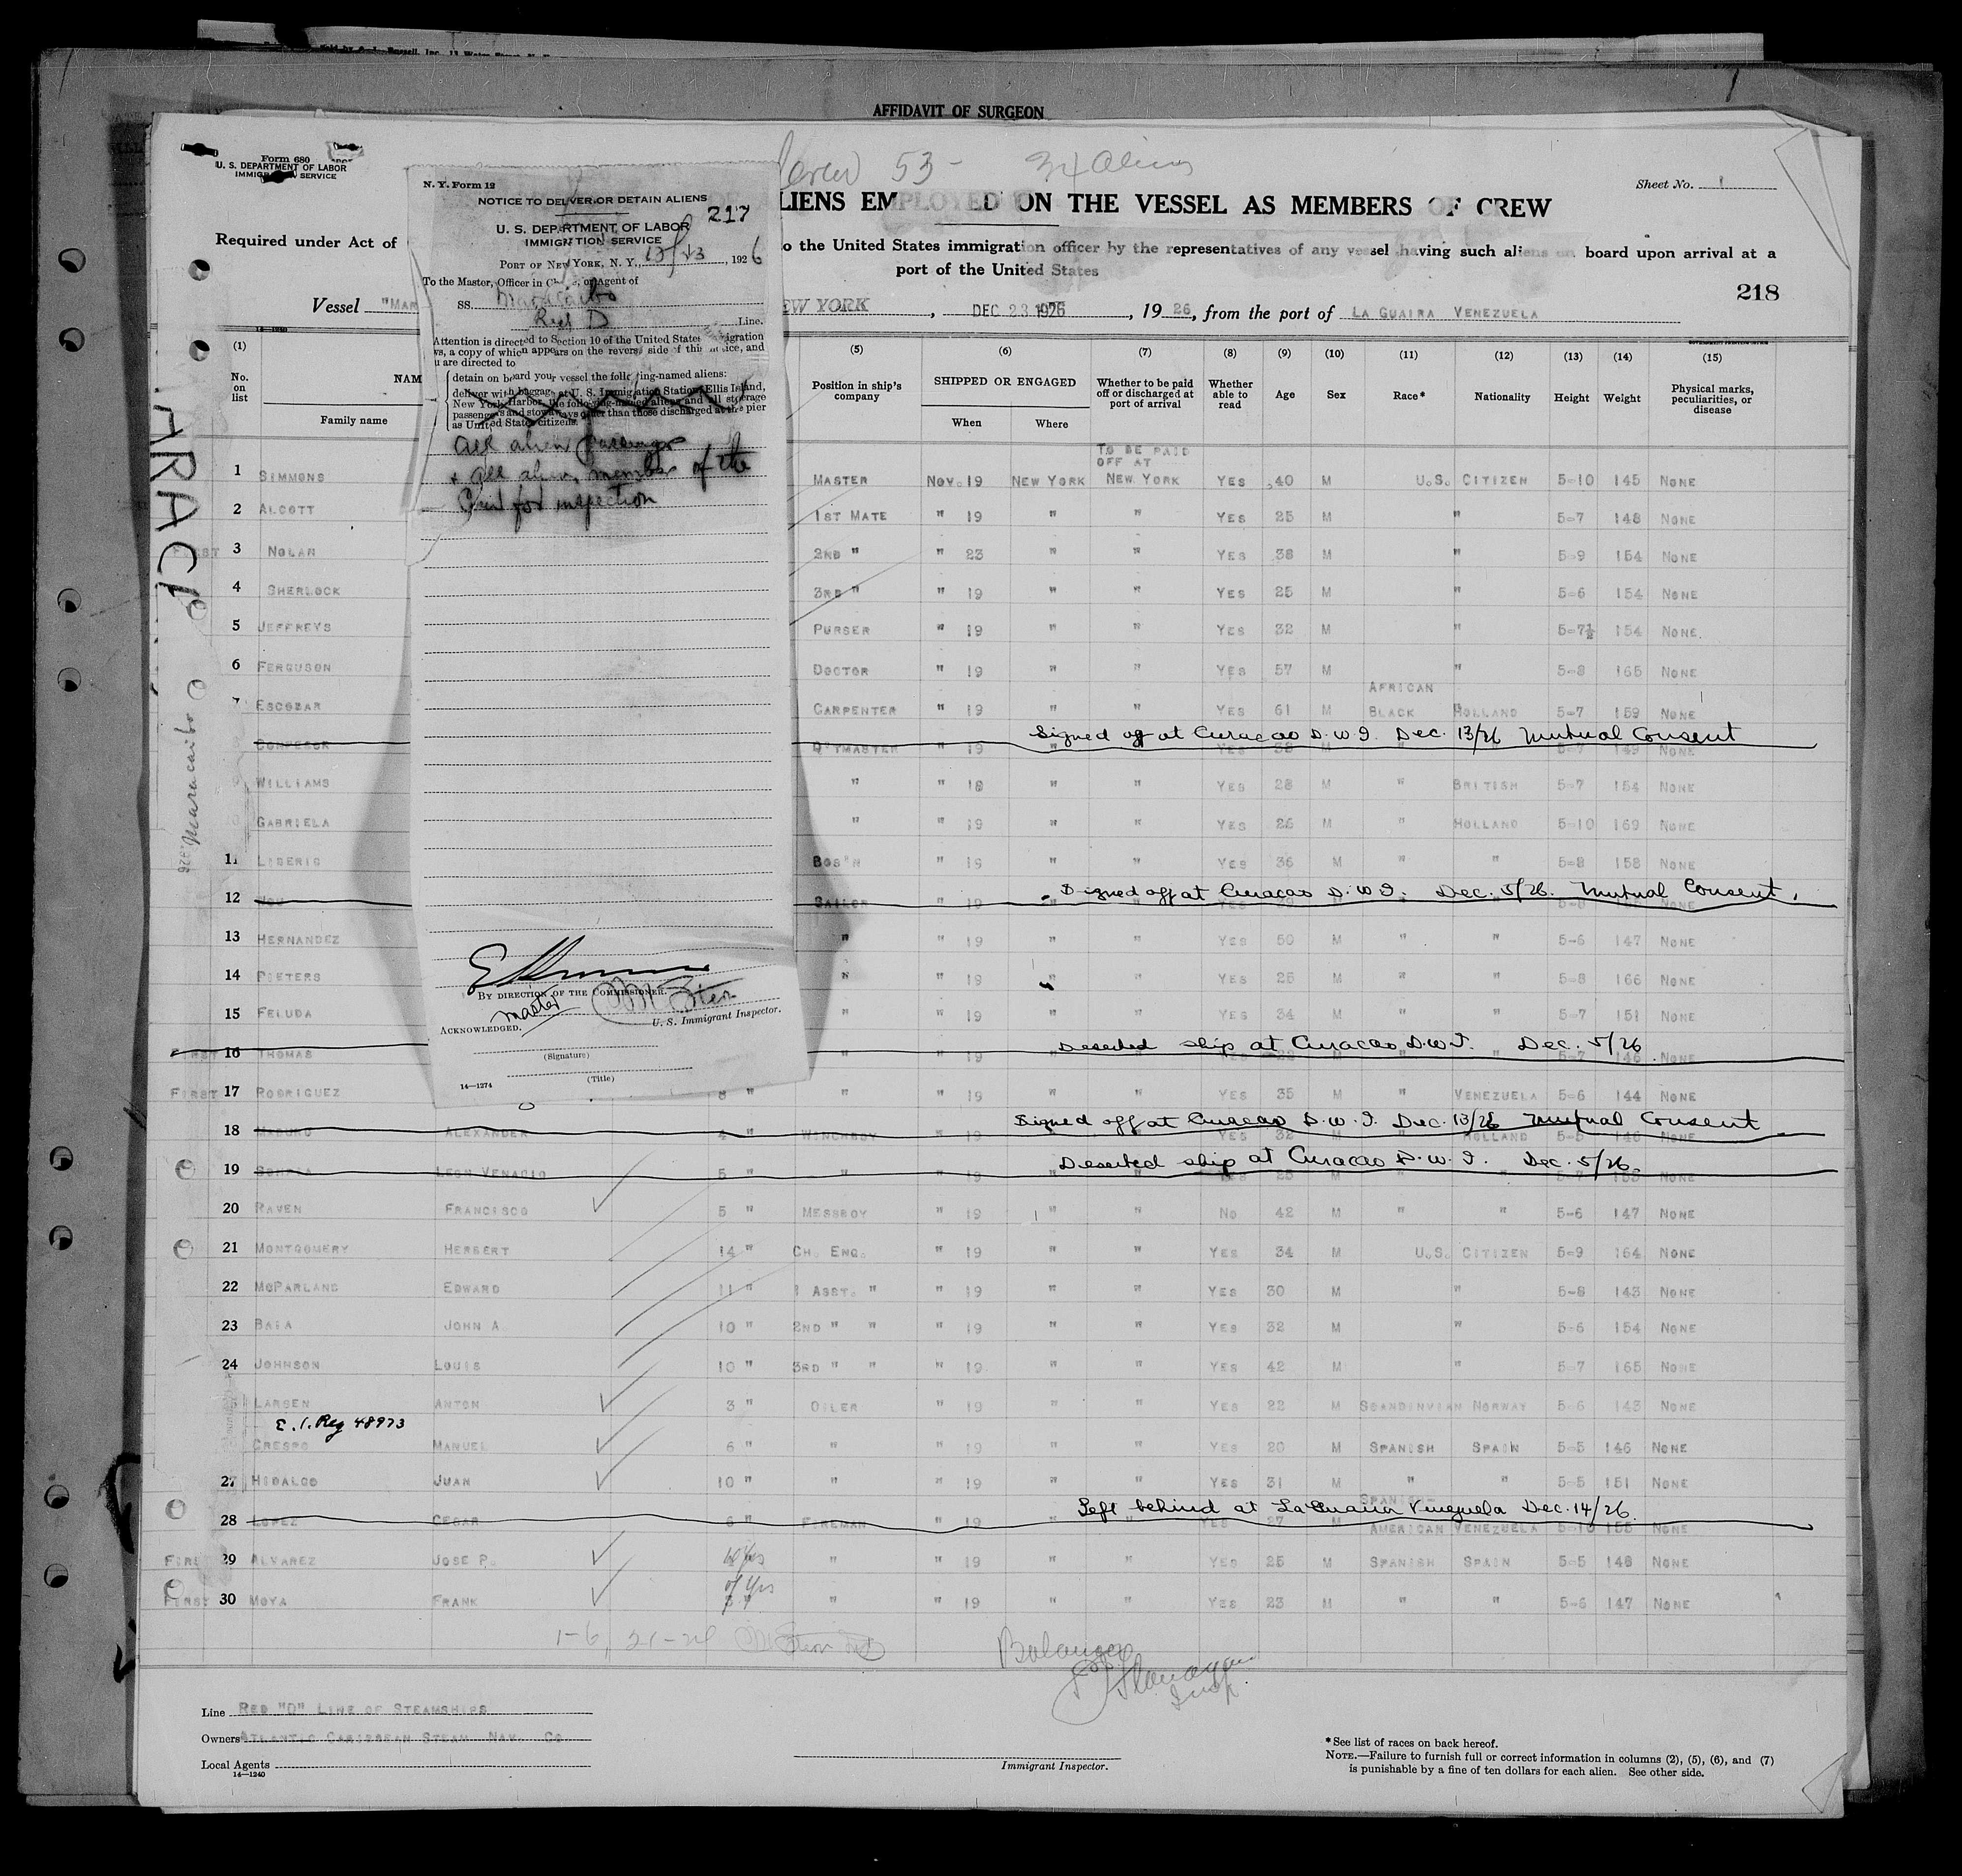 AFFIDAVIT OF SURGEON
Form 680
U. S. DEPARTMENT OF LABOR
IMMIGRATION SERVICE
53 - 34 Aliens
Sheet No. 1
ALIENS EMPLOYED ON THE VESSEL AS MEMBERS OF CREW
Required under Act of
to the United States immigration officer by the representatives of any vessel having such aliens on board upon arrival at a
port of the United States
218
Vessel "MAR
NEW YORK, DEC 23 1926, 1926, from the port of LA GUAIRA VENEZUELA
N. Y. Form 12
NOTICE TO DELIVER OR DETAIN ALIENS
217
U. S. DEPARTMENT OF LABOR
IMMIGRATION SERVICE
PORT OF NEW YORK, N. Y., 1926
To the Master, Officer in Charge, or Agent of
SS. Maracaibo
Red D Line.
Attention is directed to Section 10 of the United States Immigration
ws, a copy of which appears on the reverse side of this notice, and
u are directed to
detain on board your vessel the following-named aliens:
deliver with baggage at U. S. Immigration Station, Ellis Island,
New York Harbor, the following-named aliens and all steerage
passengers and stowaways other than those discharged at the pier
as United States citizens.
all alien passengers
+ all alien members of the
Crew for inspection
BY DIRECTION OF THE COMMISSIONER.
Master
ACKNOWLEDGED.
U. S. Immigrant Inspector.
(Signature)
(Title)
14—1274
(1) (5) (6) (7) (8) (9) (10) (11) (12) (13) (14) (15)
No. on list
NAM
Family name
Position in ship's company
SHIPPED OR ENGAGED
When
Where
Whether to be paid off or discharged at port of arrival
Whether able to read
Age
Sex
Race*
Nationality
Height
Weight
Physical marks, peculiarities, or disease
TO BE PAID
OFF AT
1 SIMMONS MASTER NOV. 19 NEW YORK NEW YORK YES 40 M U.S. CITIZEN 5-10 145 NONE
2 ALCOTT 1ST MATE " 19 " " YES 25 M " 5-7 148 NONE
FIRST 3 NOLAN 2ND " " 23 " " YES 38 M " 5-9 154 NONE
4 SHERLOCK 3RD " " 19 " " YES 25 M " 5-6 154 NONE
5 JEFFREYS PURSER " 19 " " YES 32 M " 5-7½ 154 NONE.
6 FERGUSON DOCTOR " 19 " " YES 57 M " 5-8 165 NONE
AFRICAN
7 ESCOBAR CARPENTER " 19 " " YES 61 M BLACK HOLLAND 5-7 159 NONE
Signed off at Curacao D.W.I. Dec. 13/26 Mutual Consent
Q'TMASTER " 19 YES 38 M 5-7 149 NONE
WILLIAMS " " 19 " " YES 28 M " BRITISH 5-7 154 NONE
GABRIELA " " 19 " " YES 26 M " HOLLAND 5-10 169 NONE
11 LIBERIS BOS'N " 19 " " YES 36 M " " 5-8 158 NONE
Signed off at Curacao D.W.I. Dec. 5/26. Mutual Consent.
12 SAILOR " 19 YES NONE
13 HERNANDEZ " " 19 " " YES 50 M " " 5-6 147 NONE
14 PIETERS " " 19 " YES 25 M " " 5-8 166 NONE
15 FELUDA " " 19 " " YES 34 M " " 5-7 151 NONE
Deserted ship at Curacao D.W.I. Dec. 5/26
FIRST 16 THOMAS " " 19 5-7 146 NONE
FIRST 17 RODRIGUEZ 8 " " " 19 " " YES 35 M " VENEZUELA 5-6 144 NONE
Signed off at Curacao D.W.I. Dec. 13/26 Mutual Consent
18 MADURO ALEXANDER 4 " WINCHBOY " 19 YES 32 M HOLLAND 5-5 146 NONE
Deserted ship at Curacao D.W.I. Dec. 5/26.
19 LEON VENACIO 5 " " " 19 YES 25 M NONE
20 RAVEN FRANCISCO 5 " MESSBOY " 19 " " NO 42 M " " 5-6 147 NONE
21 MONTGOMERY HERBERT 14 " CH. ENG. " 19 " " YES 34 M U.S. CITIZEN 5-9 164 NONE
22 MCPARLAND EDWARD 11 " 1 ASST. " " 19 " " YES 30 M " 5-8 143 NONE
23 BAIA JOHN A 10 " 2ND " " " 19 " " YES 32 M " 5-6 154 NONE
24 JOHNSON LOUIS 10 " 3RD " " " 19 " " YES 42 M " 5-7 165 NONE
LARSEN ANTON 3 " OILER " 19 " " YES 22 M SCANDINVIAN NORWAY 5-6 143 NONE
E.I. Reg 48973
CRESPO MANUEL 6 " " " 19 " " YES 20 M SPANISH SPAIN 5-5 146 NONE
27 HIDALGO JUAN 10 " " " 19 " " YES 31 M " " 5-5 151 NONE
Left behind at LaGuaira Venezuela Dec. 14/26.
SPANISH-
28 LOPEZ CESAR 6 " FIREMAN " 19 " " YES 27 M AMERICAN VENEZUELA 5-10 155 NONE
FIRST 29 ALVAREZ JOSE P. " " 19 " " YES 25 M SPANISH SPAIN 5-5 148 NONE
FIRST 30 MOYA FRANK " " 19 " " YES 23 M " " 5-6 147 NONE
1-6, 21-24
Line RED "D" LINE OF STEAMSHIPS
Owners ATLANTIC CARIBBEAN STEAM NAV. CO
Local Agents
14—1240
Immigrant Inspector.
*See list of races on back hereof.
NOTE.—Failure to furnish full or correct information in columns (2), (5), (6), and (7)
is punishable by a fine of ten dollars for each alien. See other side.
Maracaibo